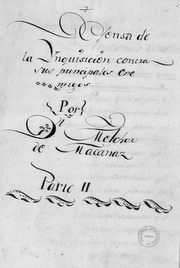 Defensa de
la Ynquisicion contra
sus principales Ene
migos
Por
Dn Melchor
de Macanaz
Parte II